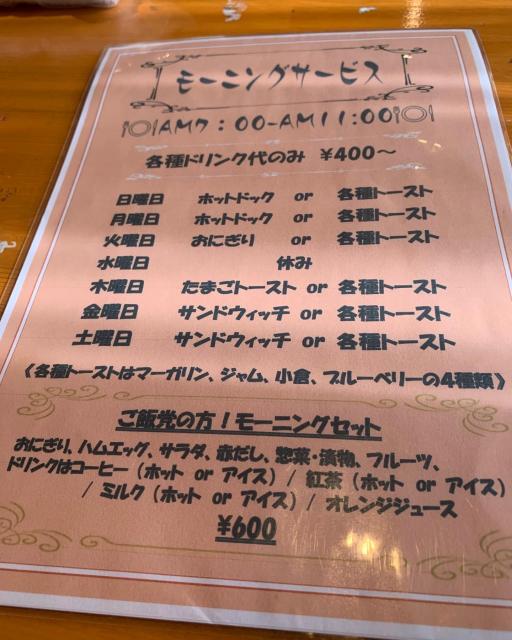 モーニングサービス
AM7:00-AM11:00
各種ドリンク代のみ ¥400〜
日曜日 ホットドック or 各種トースト
月曜日 ホットドック or 各種トースト
火曜日 おにぎり or 各種トースト
水曜日 休み
木曜日 たまごトースト or 各種トースト
金曜日 サンドウィッチ or 各種トースト
土曜日 サンドウィッチ or 各種トースト
《各種トーストはマーガリン、ジャム、小倉、ブルーベリーの4種類》
ご飯党の方!モーニングセット
おにぎり、ハムエッグ、サラダ、赤だし、惣菜・漬物、フルーツ、
ドリンクはコーヒー(ホット or アイス)/ 紅茶(ホット or アイス)
/ ミルク(ホット or アイス)/ オレンジジュース
¥600